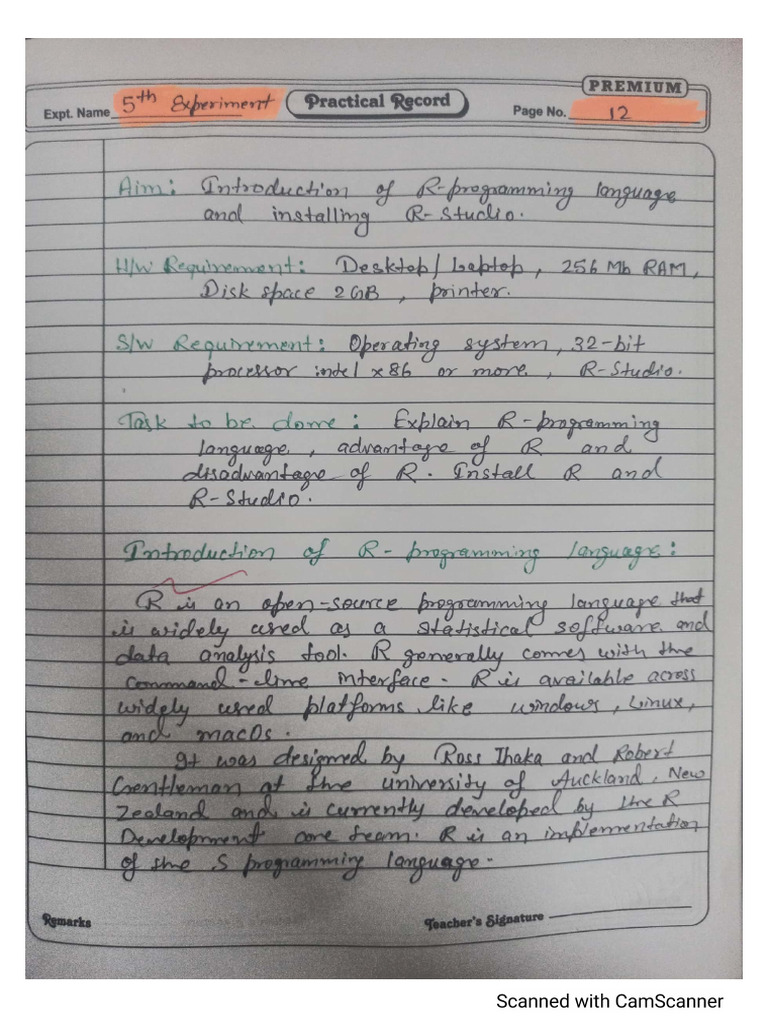 PREMIUM
Expt. Name 5th Experiment Practical Record Page No. 12
Aim: Introduction of R-programming language
and installing R-Studio.
H/W Requirement: Desktop/Laptop, 256 Mb RAM,
Disk space 2GB, printer.
S/W Requirement: Operating system, 32-bit
processor intel x86 or more, R-Studio.
Task to be done: Explain R-programming
language, advantage of R and
disadvantage of R. Install R and
R-Studio.
Introduction of R-programming language:
R is an open-source programming language that
is widely used as a statistical software and
data analysis tool. R generally comes with the
command-line interface. R is available across
widely used platforms like windows, Linux,
and macOs.
It was designed by Ross Ihaka and Robert
Gentleman at the university of Auckland, New
Zealand and is currently developed by the R
Development core team. R is an implementation
of the S programming language.
Remarks
Teacher's Signature
Scanned with CamScanner